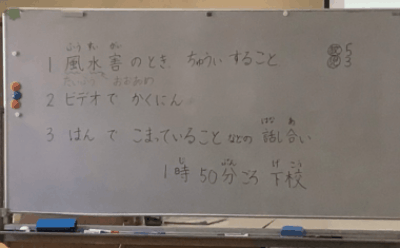 ふう すい がい
1 風水害のとき ちゅういすること
たいふう おおあめ
2 ビデオで かくにん
3 はんで こまっていることなどの 話し合い
はな あ
1時50分ごろ 下校
じ ぷん げ こう
5
3